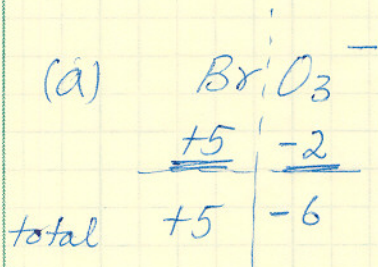 (a) BrO₃⁻
+5 -2
total +5 -6